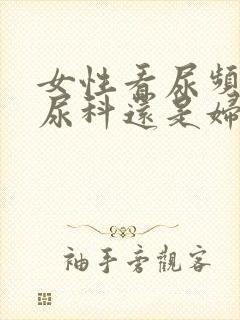 女性看尿頻
尿科還是婦
袖手旁觀客